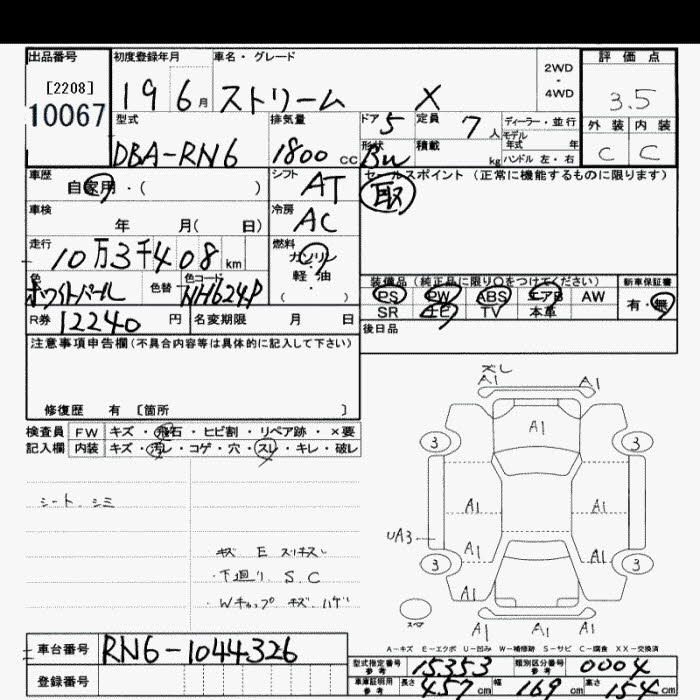 出品番号 初度登録年月 車名・グレード 2WD・4WD 評価点
[2208]
10067 19 6月 ストリーム X 3.5
型式 排気量 ドア 5 定員 7人 ディーラー・並行 外装 内装
DBA-RN6 1800cc 形状 積載 kg モデル年式 年 ハンドル 左・右 C C
車歴 シフト セールスポイント (正常に機能するものに限ります)
自家用・( ) AT 取
車検 冷房
年 月( 日) AC
走行 燃料
10万3千408km ガソリン
軽・油
( )
色 色替 色コード 装備品 (純正品に限り○をつけてください) 新車保証書
ホワイトパール NH624P PS PW ABS エアB AW 有・無
R券 12240円 名変期限 月 日 SR ナビ TV 本革
後日品
注意事項申告欄(不具合内容等は具体的に記入して下さい)
修復歴 有 [箇所 ]
検査員 FW キズ・飛石・ヒビ割・リペア跡・×要
記入欄 内装 キズ・汚レ・コゲ・穴・スレ・キレ・破レ
シート、シミ
キズ E スリキズ
・下廻り、S、C
・Wキャップ キズ、ハゲ
A1 A1
A1
3 3
A1 A1
UA3 A1 A1
3 3
A1
A1 A1
A1
A-キズ E-エクボ U-凹み W-補修跡 S-サビ C-腐食 XX-交換済
車台番号 RN6-1044326
登録番号
型式指定番号 参考 15353 類別区分番号 参考 0004
車庫証明用 参考 長さ 457cm 幅 169cm 高さ 154cm